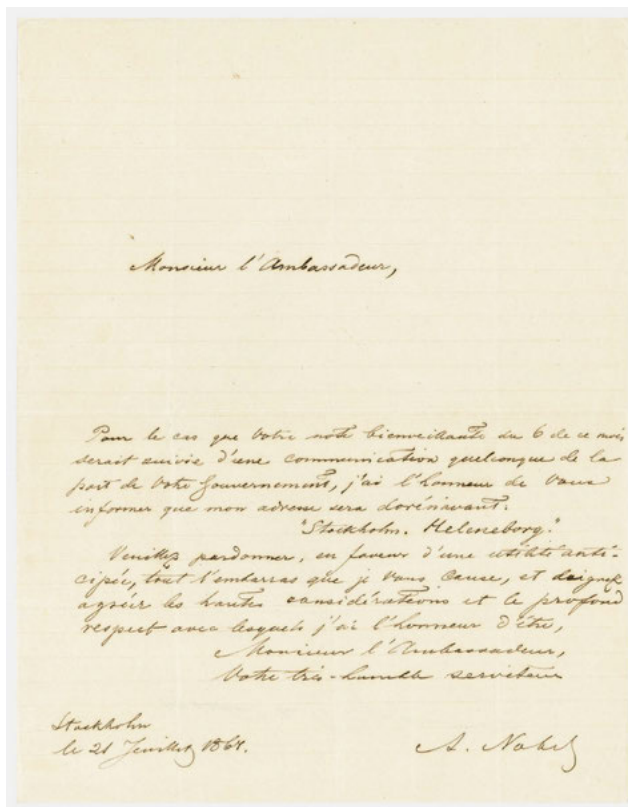 Monsieur l'Ambassadeur,
Pour le cas que Votre note bienveillante du 6 de ce mois
serait suivie d'une communication quelconque de la
part de Votre Gouvernement, j'ai l'honneur de Vous
informer que mon adresse sera dorénavant:
"Stockholm. Heleneborg."
Veuillez pardonner, en faveur d'une utilité anti-
cipée, tout l'embarras que je Vous cause, et daignez
agréer les hautes considérations et le profond
respect avec lesquels j'ai l'honneur d'être,
Monsieur l'Ambassadeur,
Votre très-humble serviteur
Stockholm
le 21 Juillet
A. Nobel